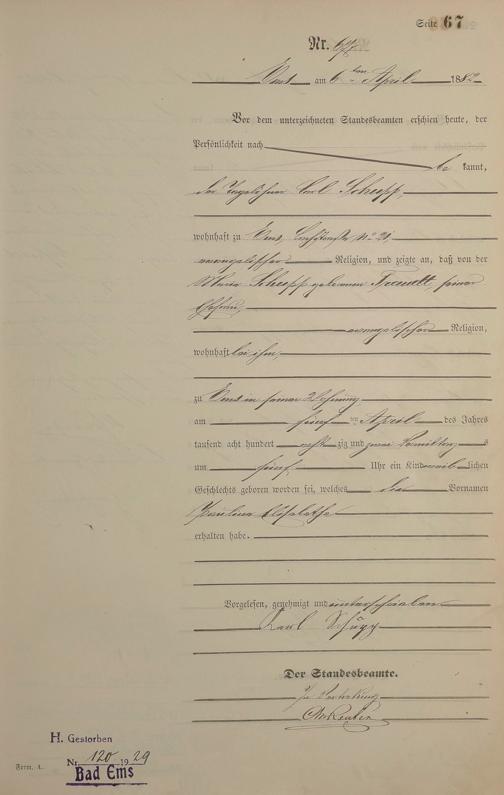 Seite 67
Nr. 67
Ems am 6ten April 1882
Vor dem unterzeichneten Standesbeamten erschien heute, der
Persönlichkeit nach
be kannt,
der Tagelöhner Carl Schupp,
wohnhaft zu Ems, No 21,
evangelischer Religion, und zeigte an, daß von der
Maria Schupp geborenen, seiner
Ehefrau,
evangelischer Religion,
wohnhaft bei ihm,
zu Ems in seiner Wohnung
am fünf ten April des Jahres
tausend acht hundert acht zig und zwei Vormittags
um fünf Uhr ein Kind weib lichen
Geschlechts geboren worden sei, welches den Vornamen
Paulina Elisabetha
erhalten habe.
Vorgelesen, genehmigt und unterschrieben
Karl Schupp
Der Standesbeamte.
In Vertretung
H. Gestorben
Nr. 120 1929
Bad Ems
Form. A.